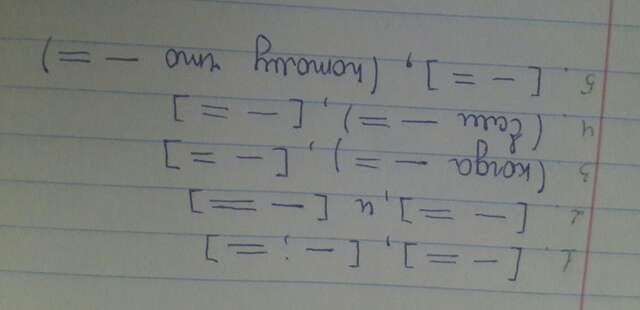 1. [ — = ], [ — ; = ]
2. [ — = ], и [ — = ]
3. (когда — = ), [ — = ]
4. (если — = ), [ — = ]
5. [ — = ], (потому что — = )